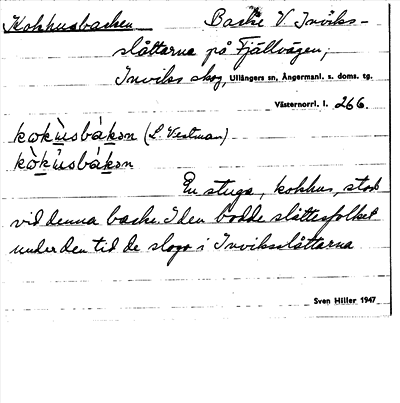 Kokhusbacken Backe V Inviks-
slåttarna på Fjällvägen,
Inviks skog, Ullångers sn, Ångermanl. s. doms. tg.
Västernorrl. l. 266.
kokùsbákən (L. Vestman)
kòkùsbákən
En stuga, kokhus, stod
vid denna backe. I den bodde slåttesfolket
under den tid de slogo i Inviksslåttarna
Sven Hiller 1947